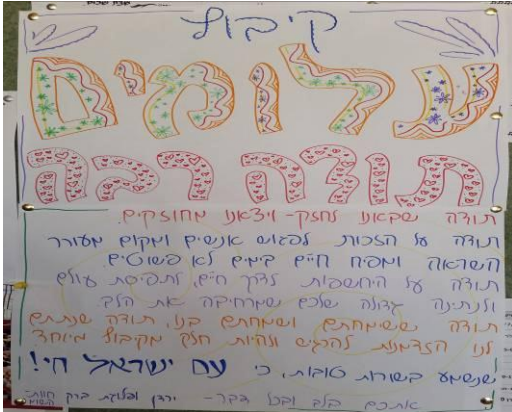 קיבוץ
עלומים
תודה רבה
תודה שבאנו לחזק- ויצאנו מחוזקים.
תודה על הזכות לפגוש אנשים ומקום מעורר
השראה ומפיח חיים בימים לא פשוטים.
תודה על היחשפות לדרך חיים, לתפיסת עולם
ולנתינה גדולה שלכם שמרחיבה את הלב.
תודה ששימחתם ושמחתם בנו, תודה שנתתם
לנו הזדמנות להרגיש ולהיות חלק מקיבוץ מיוחד
שנשמע בשורות טובות, כי עם ישראל חי!
אתכם בלב ובכל דבר- ירדן ופלוגת ברק